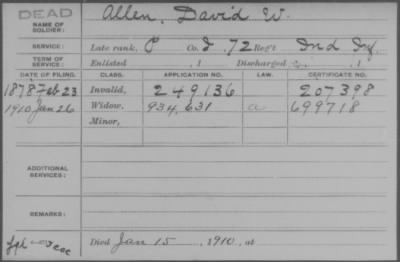 DEAD
NAME OF SOLDIER: Allen, David W.
SERVICE: Late rank, P Co. I, 72 Reg't Ind Inf.
TERM OF SERVICE: Enlisted , 1 Discharged , 1
DATE OF FILING. CLASS. APPLICATION NO. LAW. CERTIFICATE NO.
1878 Feb 23 Invalid, 249136 207398
1910 Jan 26 Widow, 934,631 a 699718
Minor,
ADDITIONAL SERVICES:
REMARKS:
Died Jan 15, 1910, at